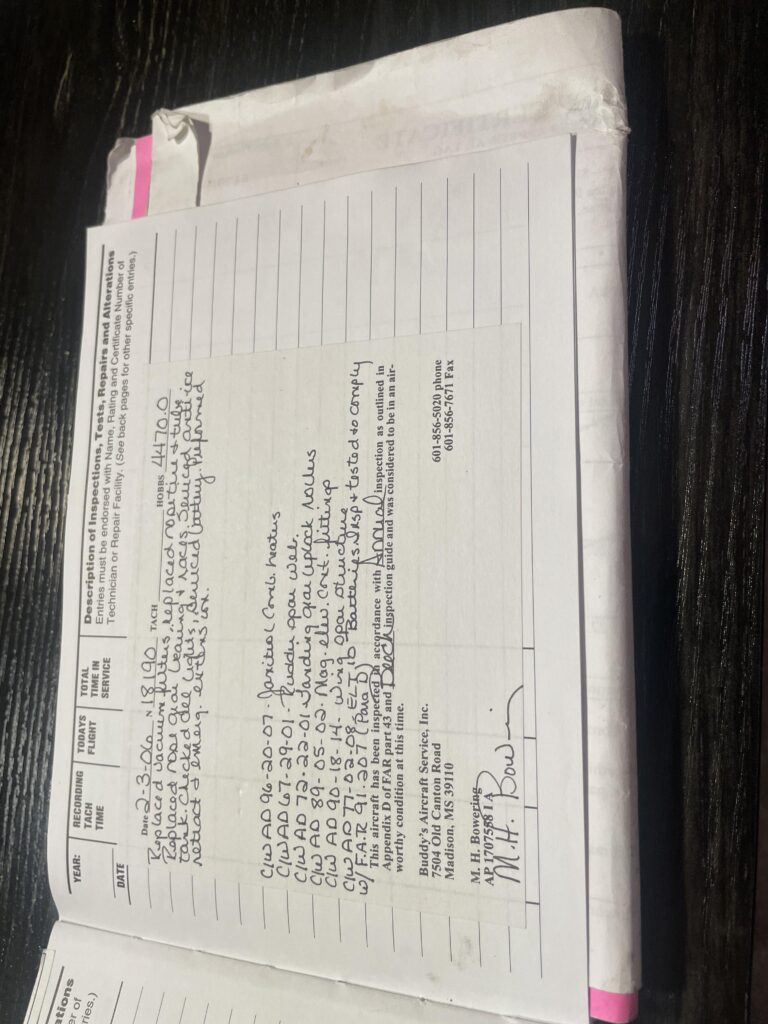 YEAR:
RECORDING TACH TIME
TODAYS FLIGHT
TOTAL TIME IN SERVICE
Description of Inspections, Tests, Repairs and Alterations
Entries must be endorsed with Name, Rating and Certificate Number of
Technician or Repair Facility. (See back pages for other specific entries.)
DATE
Date 2-3-06 N 18190 TACH HOBBS 4470.0
Replaced vacuum filters, replaced nose tire & tube
Replaced nose gear bearing & races. Serviced anti ice
tank. Checked all lights, serviced battery. Preformed
retract & emerg. extens ion.
C/W AD 96-20-07. Janitrol Comb. heaters
C/W AD 67-29-01. Rudder spar web.
C/W AD 72-22-01 Landing gear uplock rollers
C/W AD 89-05-02. Mag. elev. Cont. fittings
C/W AD 90-18-14. Wing spar structure
C/W AD 77-02-08. ELT Batteries. Insp & tested to comply
w/ F.A.R 91.207 (Para D)
This aircraft has been inspected in accordance with Annual inspection as outlined in
Appendix D of FAR part 43 and Beech inspection guide and was considered to be in an air-
worthy condition at this time.
Buddy's Aircraft Service, Inc.
7504 Old Canton Road
Madison, MS 39110
601-856-5020 phone
601-856-7671 Fax
M. H. Bowering
AP 1707558 I A
M. H. Bowering
ations
er of
ries.)